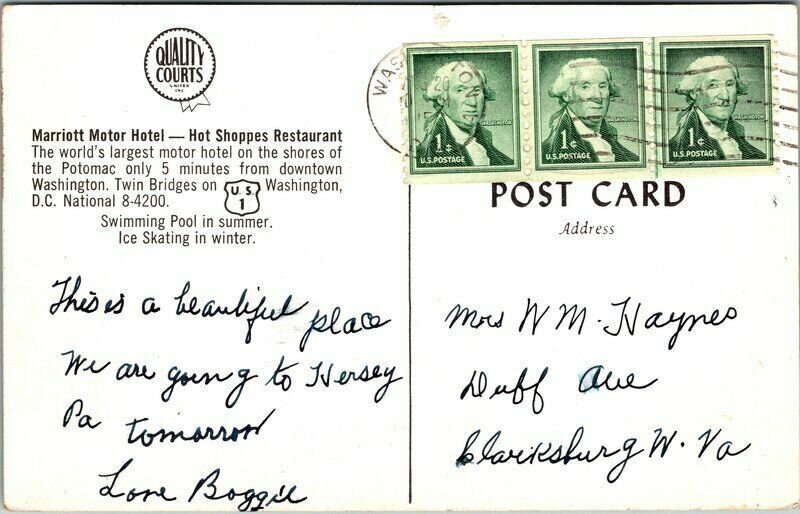 QUALITY
COURTS
UNITED
INC
Marriott Motor Hotel — Hot Shoppes Restaurant
The world's largest motor hotel on the shores of
the Potomac only 5 minutes from downtown
Washington. Twin Bridges on U.S. 1 Washington,
D.C. National 8-4200.
Swimming Pool in summer.
Ice Skating in winter.
This is a beautiful place
We are going to Hersey
Pa tomorrow
Love Boggie
WAS
WASHINGTON
1¢
U.S. POSTAGE
WASHINGTON
1¢
U.S. POSTAGE
WASHINGTON
1¢
U.S. POSTAGE
POST CARD
Address
Mrs W M. Haynes
Duff Ave
Clarksburg W. Va